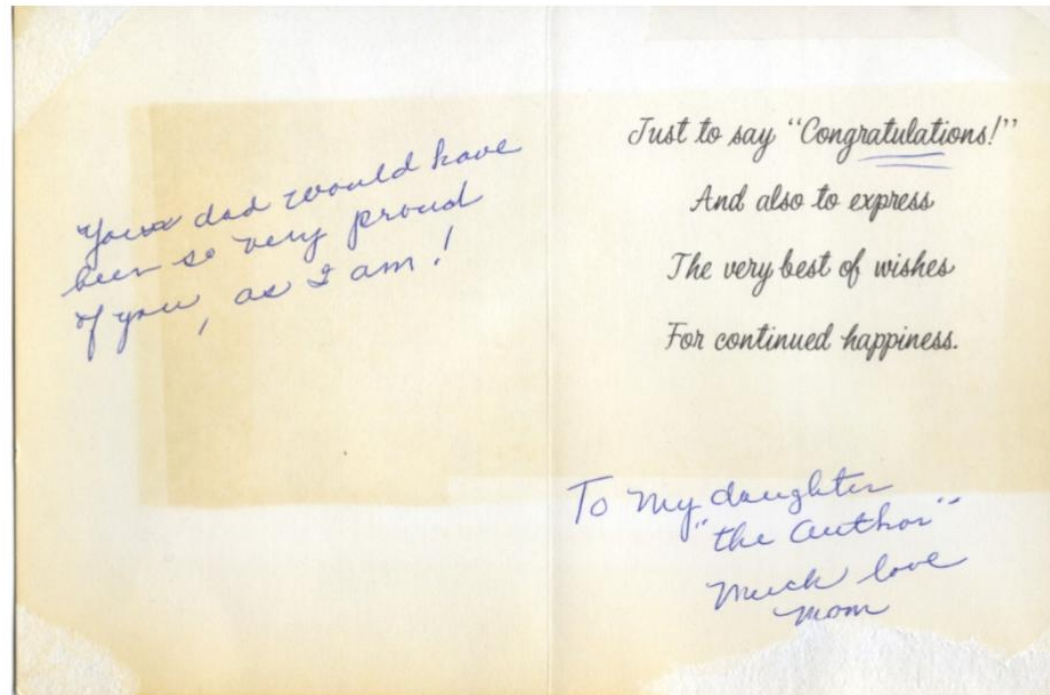 Your dad would have
been so very proud
of you, as I am!
Just to say “Congratulations!”
And also to express
The very best of wishes
For continued happiness.
To My daughter
"the Author"
Much love
Mom